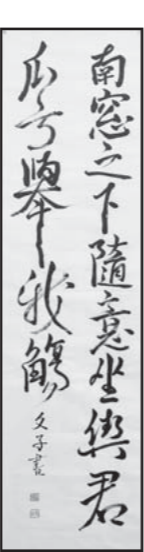 南窓之下隨意坐與君
瓜兮舉我觴
文子書